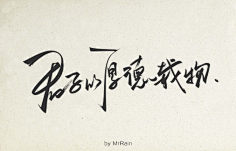 君子以厚德载物.
by MrRain